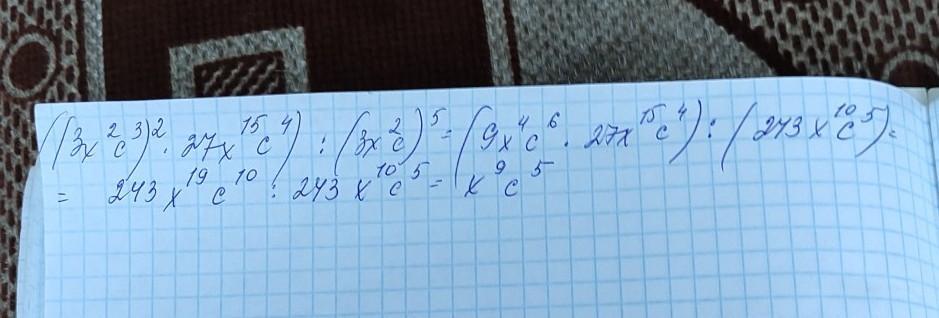 ((3x²c³)²·27x¹⁵c⁴):(3x²c)⁵=(9x⁴c⁶·27x¹⁵c⁴):(243x¹⁰c⁵)=
=243x¹⁹c¹⁰:243x¹⁰c⁵=x⁹c⁵